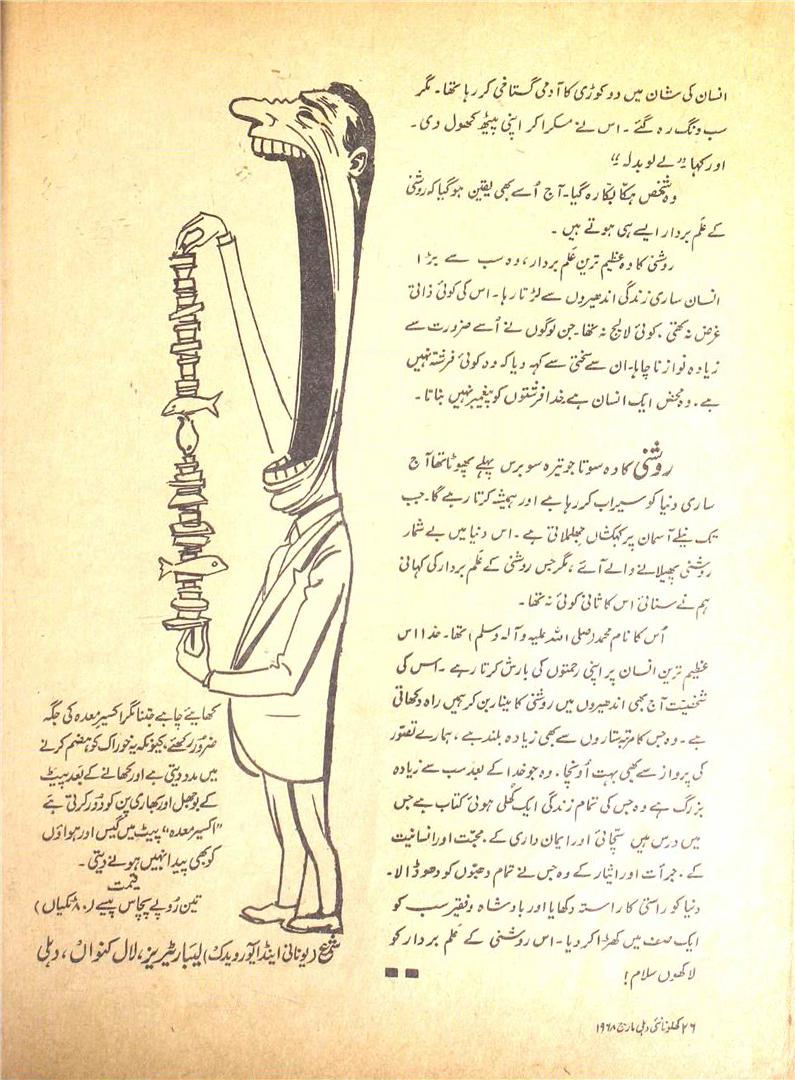 انسان کی شان میں دو کوڑی کا آدمی گستاخی کر رہا تھا۔ مگر
سب دنگ رہ گئے۔ اس نے مسکرا کر اپنی پیٹھ کھول دی۔
اور کہا ”لے لو بدلہ“
وہ شخص ہکّا بکّا رہ گیا۔ آج اُسے بھی یقین ہو گیا کہ روشنی
کے عَلَم بردار ایسے ہی ہوتے ہیں۔
روشنی کا وہ عظیم ترین عَلم بردار، وہ سب سے بڑا
انسان ساری زندگی اندھیروں سے لڑتا رہا۔ اس کی کوئی ذاتی
غرض نہ تھی، کوئی لالچ نہ تھا۔ جن لوگوں نے اُسے ضرورت سے
زیادہ نوازنا چاہا۔ ان سے سختی سے کہہ دیا کہ وہ کوئی فرشتہ نہیں
ہے۔ وہ محض ایک انسان ہے خدا فرشتوں کو پیغمبر نہیں بناتا۔
روشنی کا وہ سوتا جو تیرہ سو برس پہلے پھوٹا تھا آج
ساری دنیا کو سیراب کر رہا ہے اور ہمیشہ کرتا رہے گا۔ جب
تک نیلے آسمان پر کہکشاں جھلملاتی ہے۔ اس دنیا میں بے شمار
روشنی پھیلانے والے آئے، مگر جس روشنی کے عَلم بردار کی کہانی
ہم نے سنائی اس کا ثانی کوئی نہ تھا۔
اُس کا نام محمد (صلی اللہ علیہ وآلہ وسلم) تھا۔ خدا اس
عظیم ترین انسان پر اپنی رحمتوں کی بارش کرتا رہے۔ اس کی
شخصیت آج بھی اندھیروں میں روشنی کا مینار بن کر ہمیں راہ دکھاتی
ہے۔ وہ جس کا مرتبہ ستاروں سے بھی زیادہ بلند ہے، ہمارے تصّور
کی پرواز سے بھی بہت اُونچا۔ وہ جو خدا کے بعد سب سے زیادہ
بزرگ ہے وہ جس کی تمام زندگی ایک کھُلی ہوئی کتاب ہے جس
میں درس ہیں سچّائی اور ایمان داری کے۔ محبّت اور انسانیت
کے۔ جرأت اور ایثار کے وہ جس نے تمام دھبّوں کو دھو ڈالا۔
دنیا کو راستی کا راستہ دکھایا اور بادشاہ و فقیر سب کو
ایک صف میں کھڑا کر دیا۔ اس روشنی کے عَلم بردار کو
لاکھوں سلام!
کھایئے چاہے جتنا مگر اکسیر معدہ کی جگہ
ضرور رکھئے، کیونکہ یہ خوراک کو ہضم کرنے
میں مدد دیتی ہے اور کھانے کے بعد پیٹ
کے بوجھل اور بھاری پن کو دُور کرتی ہے
”اکسیر معدہ“ پیٹ میں گیس اور ہواؤں
کو بھی پیدا نہیں ہونے دیتی۔
قیمت
تین رُوپے پچاس پیسے (۸۰ ٹکیاں)
شمع (یونانی اینڈ آیورویدک) لیبارٹیریز، لال کنواں، دہلی
۲۶ کھلونا نئی دہلی مارچ ۱۹۶۸